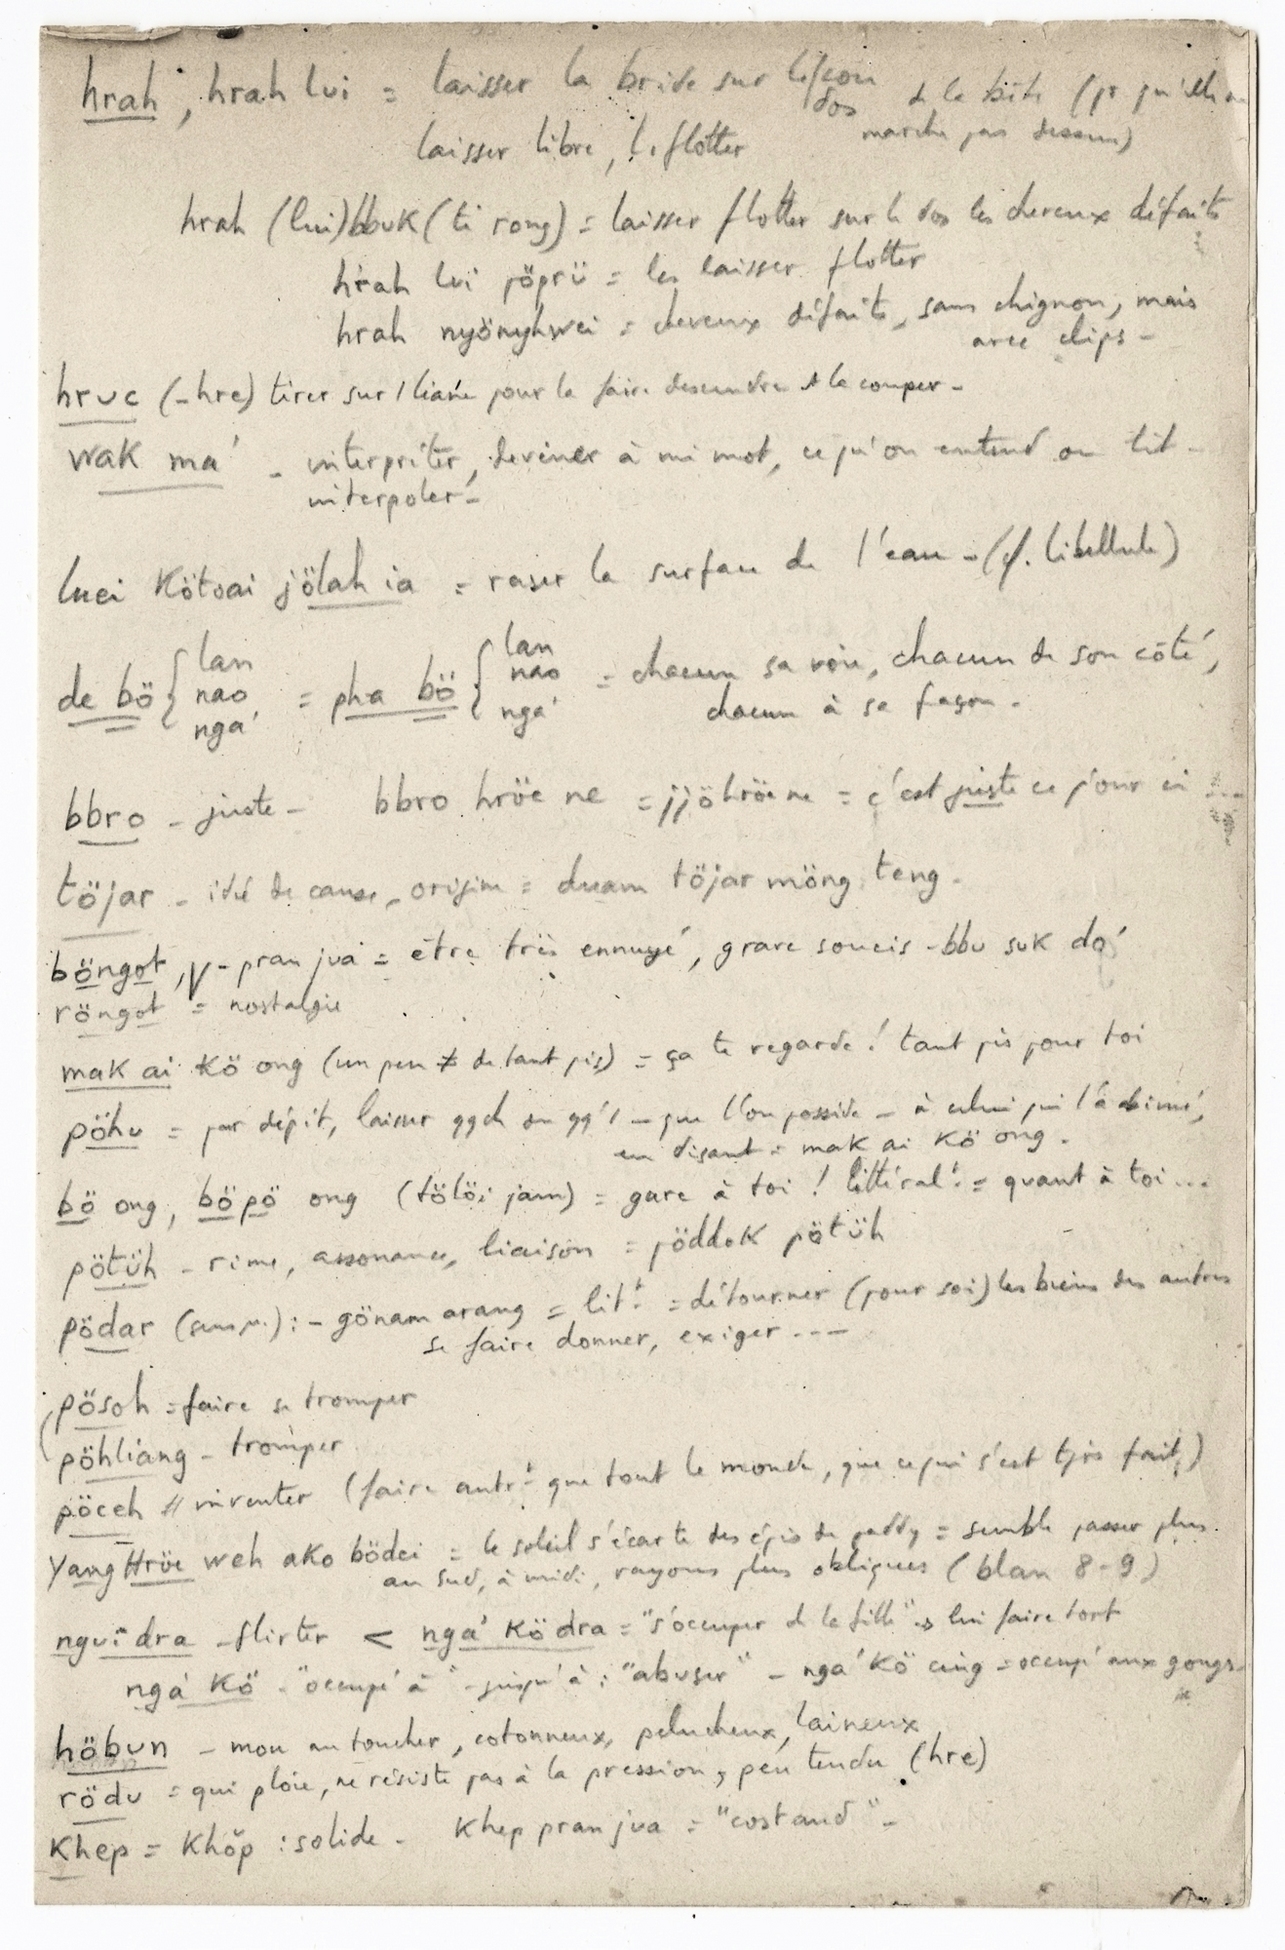 hrah, hrah lui = laisser la bride sur le cou de la bête (pr qu'elle ne
dos marche pas dessus)
laisser libre, flotter
hrah (lui) bbuk (ti rong) = laisser flotter sur le dos les cheveux défaits
hrah lui pöprü = les laisser flotter
hrah nyönyhwei = cheveux défaits, sans chignon, mais
avec clips -
hruc (-hre) tirer sur 1 liane pour la faire descendre & la couper -
wak ma' - interpréter, deviner à mi mot, ce qu'on entend ou lit -
interpoler -
luei Kötoai jölah ia = raser la surface de l'eau - (cf. libellule)
de bö { lan nao nga' = pha bö { lan nao nga' = chacun sa voie, chacun de son côté,
chacun à sa façon.
bbro - juste - bbro hröe ne = jjöhröe ne = c'est juste ce jour ci ...
töjar - idée de cause, origine = duam töjar möng teng -
böngot, - pran jua = être très ennuyé, grave soucis - bbu suk do'
röngot = nostalgie
mak ai kö ong (un peu ≠ de tant pis) = ça te regarde ! tant pis pour toi
pöhu = par dépit, laisser qqch ou qq'1 - que l'on possède - à celui qui l'a abimé,
en disant = mak ai Kö ong.
bö ong, böpö ong (tölöi jam) = gare à toi ! littéralt = quant à toi ...
pötüh - rime, assonance, liaison = pöddok pötüh
pödar : - gönam arang = litt = détourner (pour soi) les biens des autres
se faire donner, exiger ---
pösoh = faire se tromper
pöhliang - tromper
pöceh // inventer (faire autrt que tout le monde, que ce qui s'est tjrs fait)
Yang Hröe weh ako bödei = le soleil s'écarte des épis de paddy = semble passer plus
au sud, à midi, rayons plus obliques (blan 8-9)
ngui dra - flirter < nga' Ködra = "s'occuper de la fille" → lui faire tort
nga' Kö - "occupé à" - jusqu'à : "abuser" - nga' Kö cing = occupé aux gongs -
höbun - mou au toucher, cotonneux, pelucheux, laineux
rödu = qui ploie, ne résiste pas à la pression, peu tendu (hre)
Khep = Khŏp : solide - Khep pran jua = "costaud" -